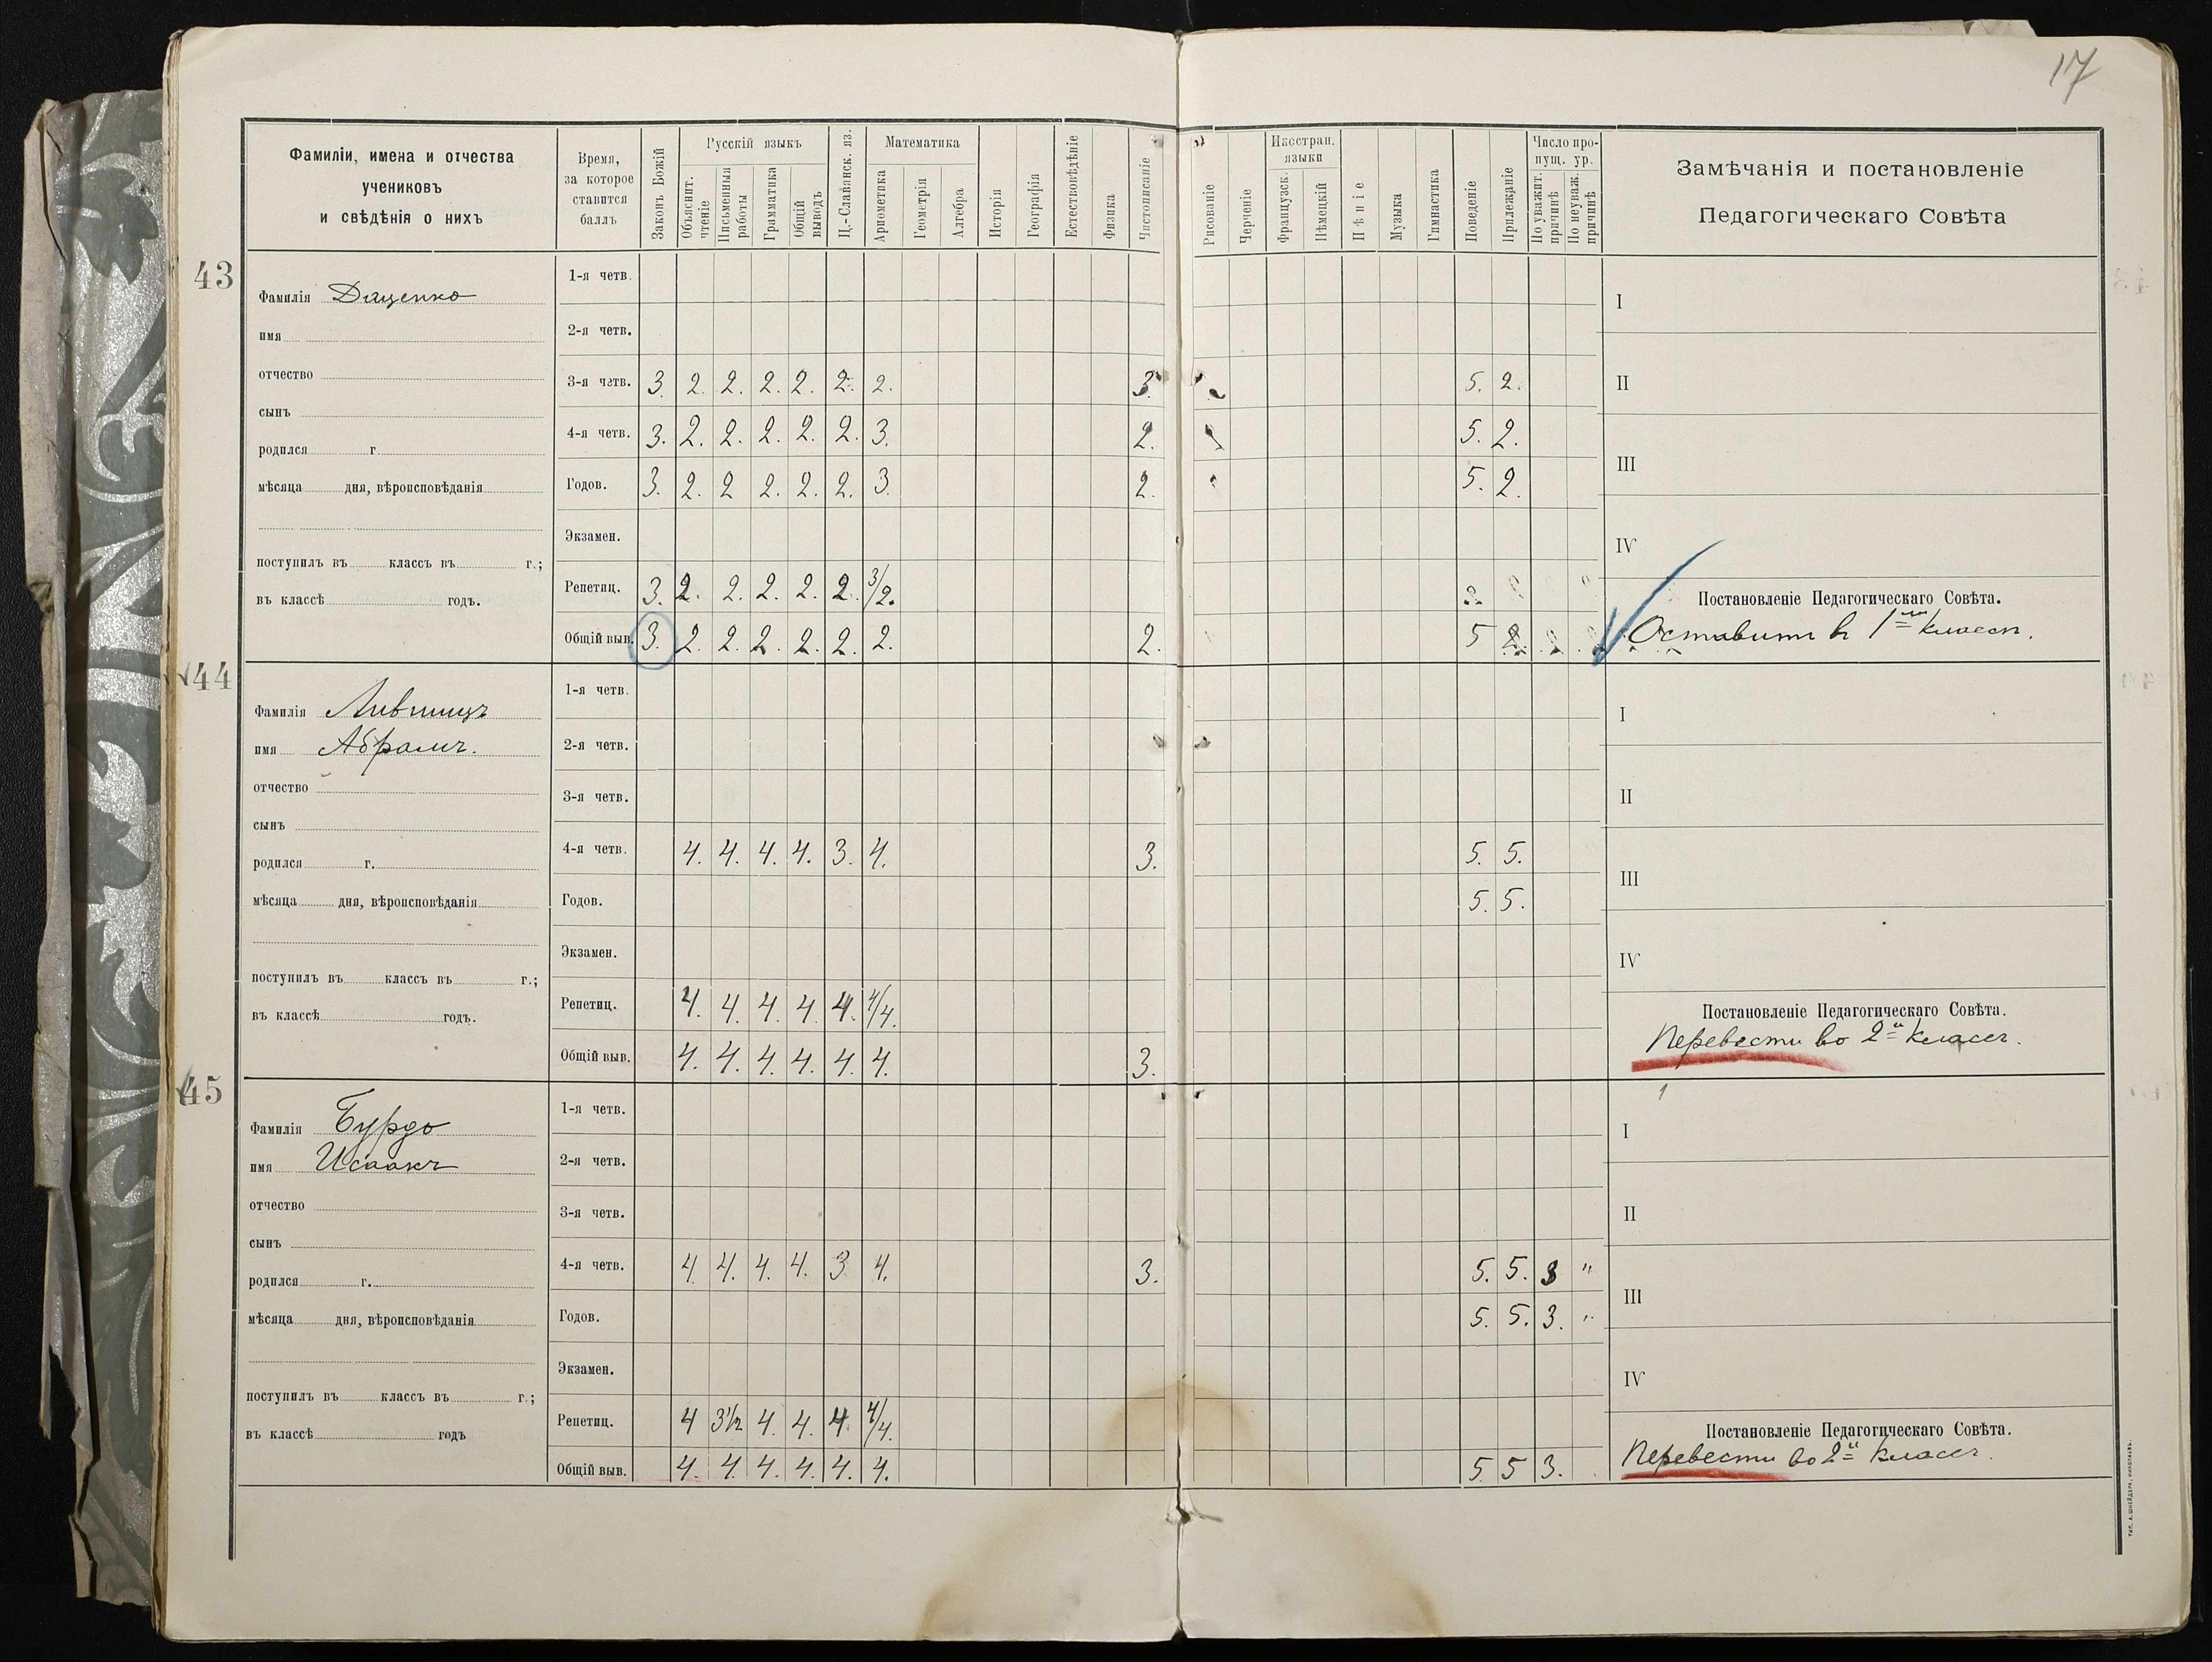 17
Фамиліи, имена и отчества
учениковъ
и свѣдѣнія о нихъ
Время,
за которое
ставится
баллъ
Законъ Божій
Русскій языкъ
Объяснит. чтеніе
Письменныя работы
Грамматика
Общій выводъ
Ц.-Славянск. яз.
Математика
Ариѳметика
Геометрія
Алгебра
Исторія
Географія
Естествовѣдѣніе
Физика
Чистописаніе
Рисованіе
Черченіе
Иностран. языки
Французск.
Нѣмецкій
Пѣніе
Музыка
Гимнастика
Поведеніе
Прилежаніе
Число пропущ. ур.
По уважит. причинѣ
По неуваж. причинѣ
Замѣчанія и постановленіе
Педагогическаго Совѣта
43
Фамилія Даценко
имя
отчество
сынъ
родился г.
мѣсяца дня, вѣроисповѣданія
поступилъ въ классъ въ г.;
въ классѣ годъ.
1-я четв.
2-я четв.
3-я четв. 3. 2. 2. 2. 2. 2. 2. 3. 5. 2.
4-я четв. 3. 2. 2. 2. 2. 2. 3. 2. 5. 2.
Годов. 3. 2. 2 2. 2. 2. 3. 2. 5. 2.
Экзамен.
Репетиц. 3. 2. 2. 2. 2. 2. 3/2.
Общій выв. 3. 2. 2. 2. 2. 2. 2. 2. 5 2.
I
II
III
IV
Постановленіе Педагогическаго Совѣта.
Оставить въ 1-мъ классѣ.
44
Фамилія Лившицъ
имя Абрамъ.
отчество
сынъ
родился г.
мѣсяца дня, вѣроисповѣданія
поступилъ въ классъ въ г.;
въ классѣ годъ.
1-я четв.
2-я четв.
3-я четв.
4-я четв. 4. 4. 4. 4. 3. 4. 3. 5. 5.
Годов. 5. 5.
Экзамен.
Репетиц. 4. 4. 4. 4. 4. 4/4.
Общій выв. 4. 4. 4. 4. 4. 4. 3.
I
II
III
IV
Постановленіе Педагогическаго Совѣта.
Перевести во 2-й классъ.
45
Фамилія Бурдо
имя Исаакъ
отчество
сынъ
родился г.
мѣсяца дня, вѣроисповѣданія
поступилъ въ классъ въ г.;
въ классѣ годъ
1-я четв.
2-я четв.
3-я четв.
4-я четв. 4. 4. 4. 4. 3 4. 3. 5. 5. 3 "
Годов. 5. 5. 3. "
Экзамен.
Репетиц. 4 3½ 4. 4. 4. 4/4.
Общій выв. 4. 4. 4. 4. 4. 4. 5 5 3.
I
II
III
IV
Постановленіе Педагогическаго Совѣта.
Перевести во 2-й классъ.